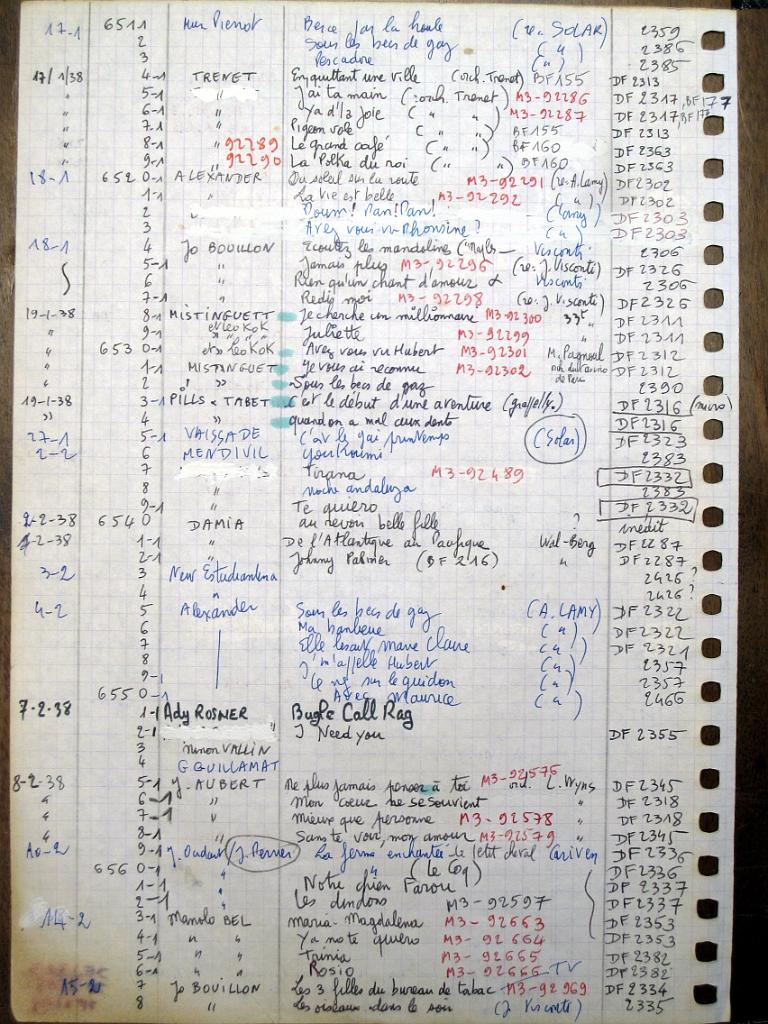 17-1 6511 Berce par la houle (re. SOLAR) 2359
2 Sous les becs de gaz (") 2386
3 Pescadore (") 2385
17/1/38 4-1 TRENET En quittant une ville (orch. Trenet) BF155 DF 2313
" 5-1 J'ai ta main (orch. Trenet) M3-92286 DF 2317, BF177
" 6-1 Y a d'la joie (" ") M3-92287 DF 2317, BF177
" 7-1 Pigeon vole (" ") BF155 DF 2313
" 8-1 " 92289 Le grand café (" ") BF160 DF 2363
" 9-1 " 92290 La Polka du roi (" ") BF160 DF 2363
18-1 6520-1 ALEXANDER Du soleil sur la route M3-92291 (re: A. Lamy) DF 2302
1-1 " La vie est belle M3-92292 (") DF 2302
2 " Poum! Pan! Pan! (Lamy) DF 2303
3 Avez vous vu Rhonsine? (") DF 2303
18-1 4 Jo BOUILLON Ecoutez les mandolines Visconti 2306
5-1 " Jamais plus M3-92296 (re: J. Visconti) DF 2326
6 " Rien qu'un chant d'amour Visconti 2306
7-1 " Redis moi M3-92298 (re: J. Visconti) DF 2326
19-1-38 8-1 MISTINGUETT Je cherche un millionnaire M3-92300 33t DF 2311
" 9-1 et Léo Kok Juliette M3-92299 " DF 2311
" 6530-1 et Léo Kok Avez vous vu Hubert M3-92301 M. Pagnoul DF 2312
" 1-1 MISTINGUET Je vous ai reconnu M3-92302 DF 2312
" 2 " " Sous les becs de gaz 2390
19-1-38 3-1 PILLS & TABET C'est le début d'une aventure (grappelly.) DF 2316 (micro)
" 4 " quand on a mal aux dents DF 2316
27-1 5-1 VAISSADE C'est le gai printemps (Solar) DF 2323
2-2 6 MENDIVIL 2383
7 Tirana M3-92489 DF 2332
8 " noche andaluza 2383
9-1 " Te quiero DF 2332
2-2-38 6540 DAMIA au revoir belle fille ? inédit
2-2-38 1-1 " De l'Atlantique au Pacifique Wal-Berg DF 2287
2-1 " Johnny Palmer (BF 216) " DF 2287
3-2 3 New Estudiantina 2426 ?
4 " 2426 ?
4-2 5 Alexander Sous les becs de gaz (A. LAMY) DF 2322
6 Ma banlieue (") DF 2322
7 Elle Marie Claire (") DF 2321
8 J' m'appelle Hubert (") 2357
9-1 Le nez sur le guidon (") 2357
6550-1 Avec Maurice (") 2466
7-2-38 1-1 Ady ROSNER Bugle Call Rag
2-1 I Need you DF 2355
3 ninon VALLIN
4 G GUILLAMAT
8-2-38 5-1 J. AUBERT ne plus jamais penser à toi M3-92576 orch. L. Wyns DF 2345
" 6-1 " Mon coeur se souvient " DF 2318
" 7-1 " mieux que personne M3-92578 " DF 2318
" 8-1 " Sans te voir, mon amour M3-92579 " DF 2345
10-2 9-1 J. Oudart/J. Perrier La ferme enchantée le petit cheval Cariven DF 2336
6560-1 " " (Le Coq) DF 2336
1-1 " Notre chien Farou DF 2337
2-1 " Les dindons M3-92597 DF 2337
14-2 3-1 Manolo BEL Maria-Magdalena M3-92663 DF 2353
4-1 " " Ya no te quiero M3-92664 DF 2353
5-1 " " Trinia M3-92665 DF 2382
6-1 " " Rosio M3-92666-TV DF 2382
15-2 7 Jo BOUILLON Les 3 filles du bureau de tabac M3-92969 DF 2334
8 " Les oiseaux dans le soir (J Visconti) 2335